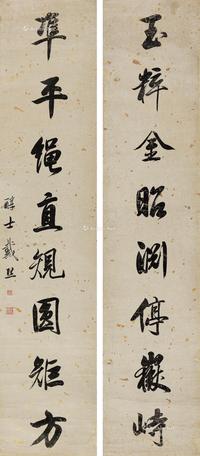 玉粹金昭渊停嶽峙
準平绳直规圆矩方
醇士戴熙